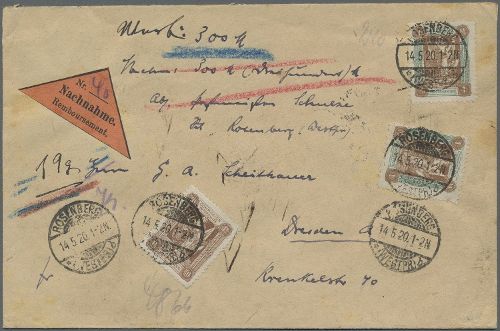 Wertb: 300 M
Nachn: 300 M (Dreihundert) M
Schulze
Rosenberg (Westpr)
Nr. 46
Nachnahme.
Remboursement.
19 g. Herrn G. A. Scheithauer
Dresden A
Krenkelstr 10
ROSENBERG
14.5.20.1-2N
(WESTPR.)
ROSENBERG
14.5.20.1-2N
(WESTPR.)
ROSENBERG
14.5.20.1-2N
(WESTPR.)
ROSENBERG
14.5.20.1-2N
(WESTPR.)
ROSENBERG
14.5.20.1-2N
(WESTPR.)
fr